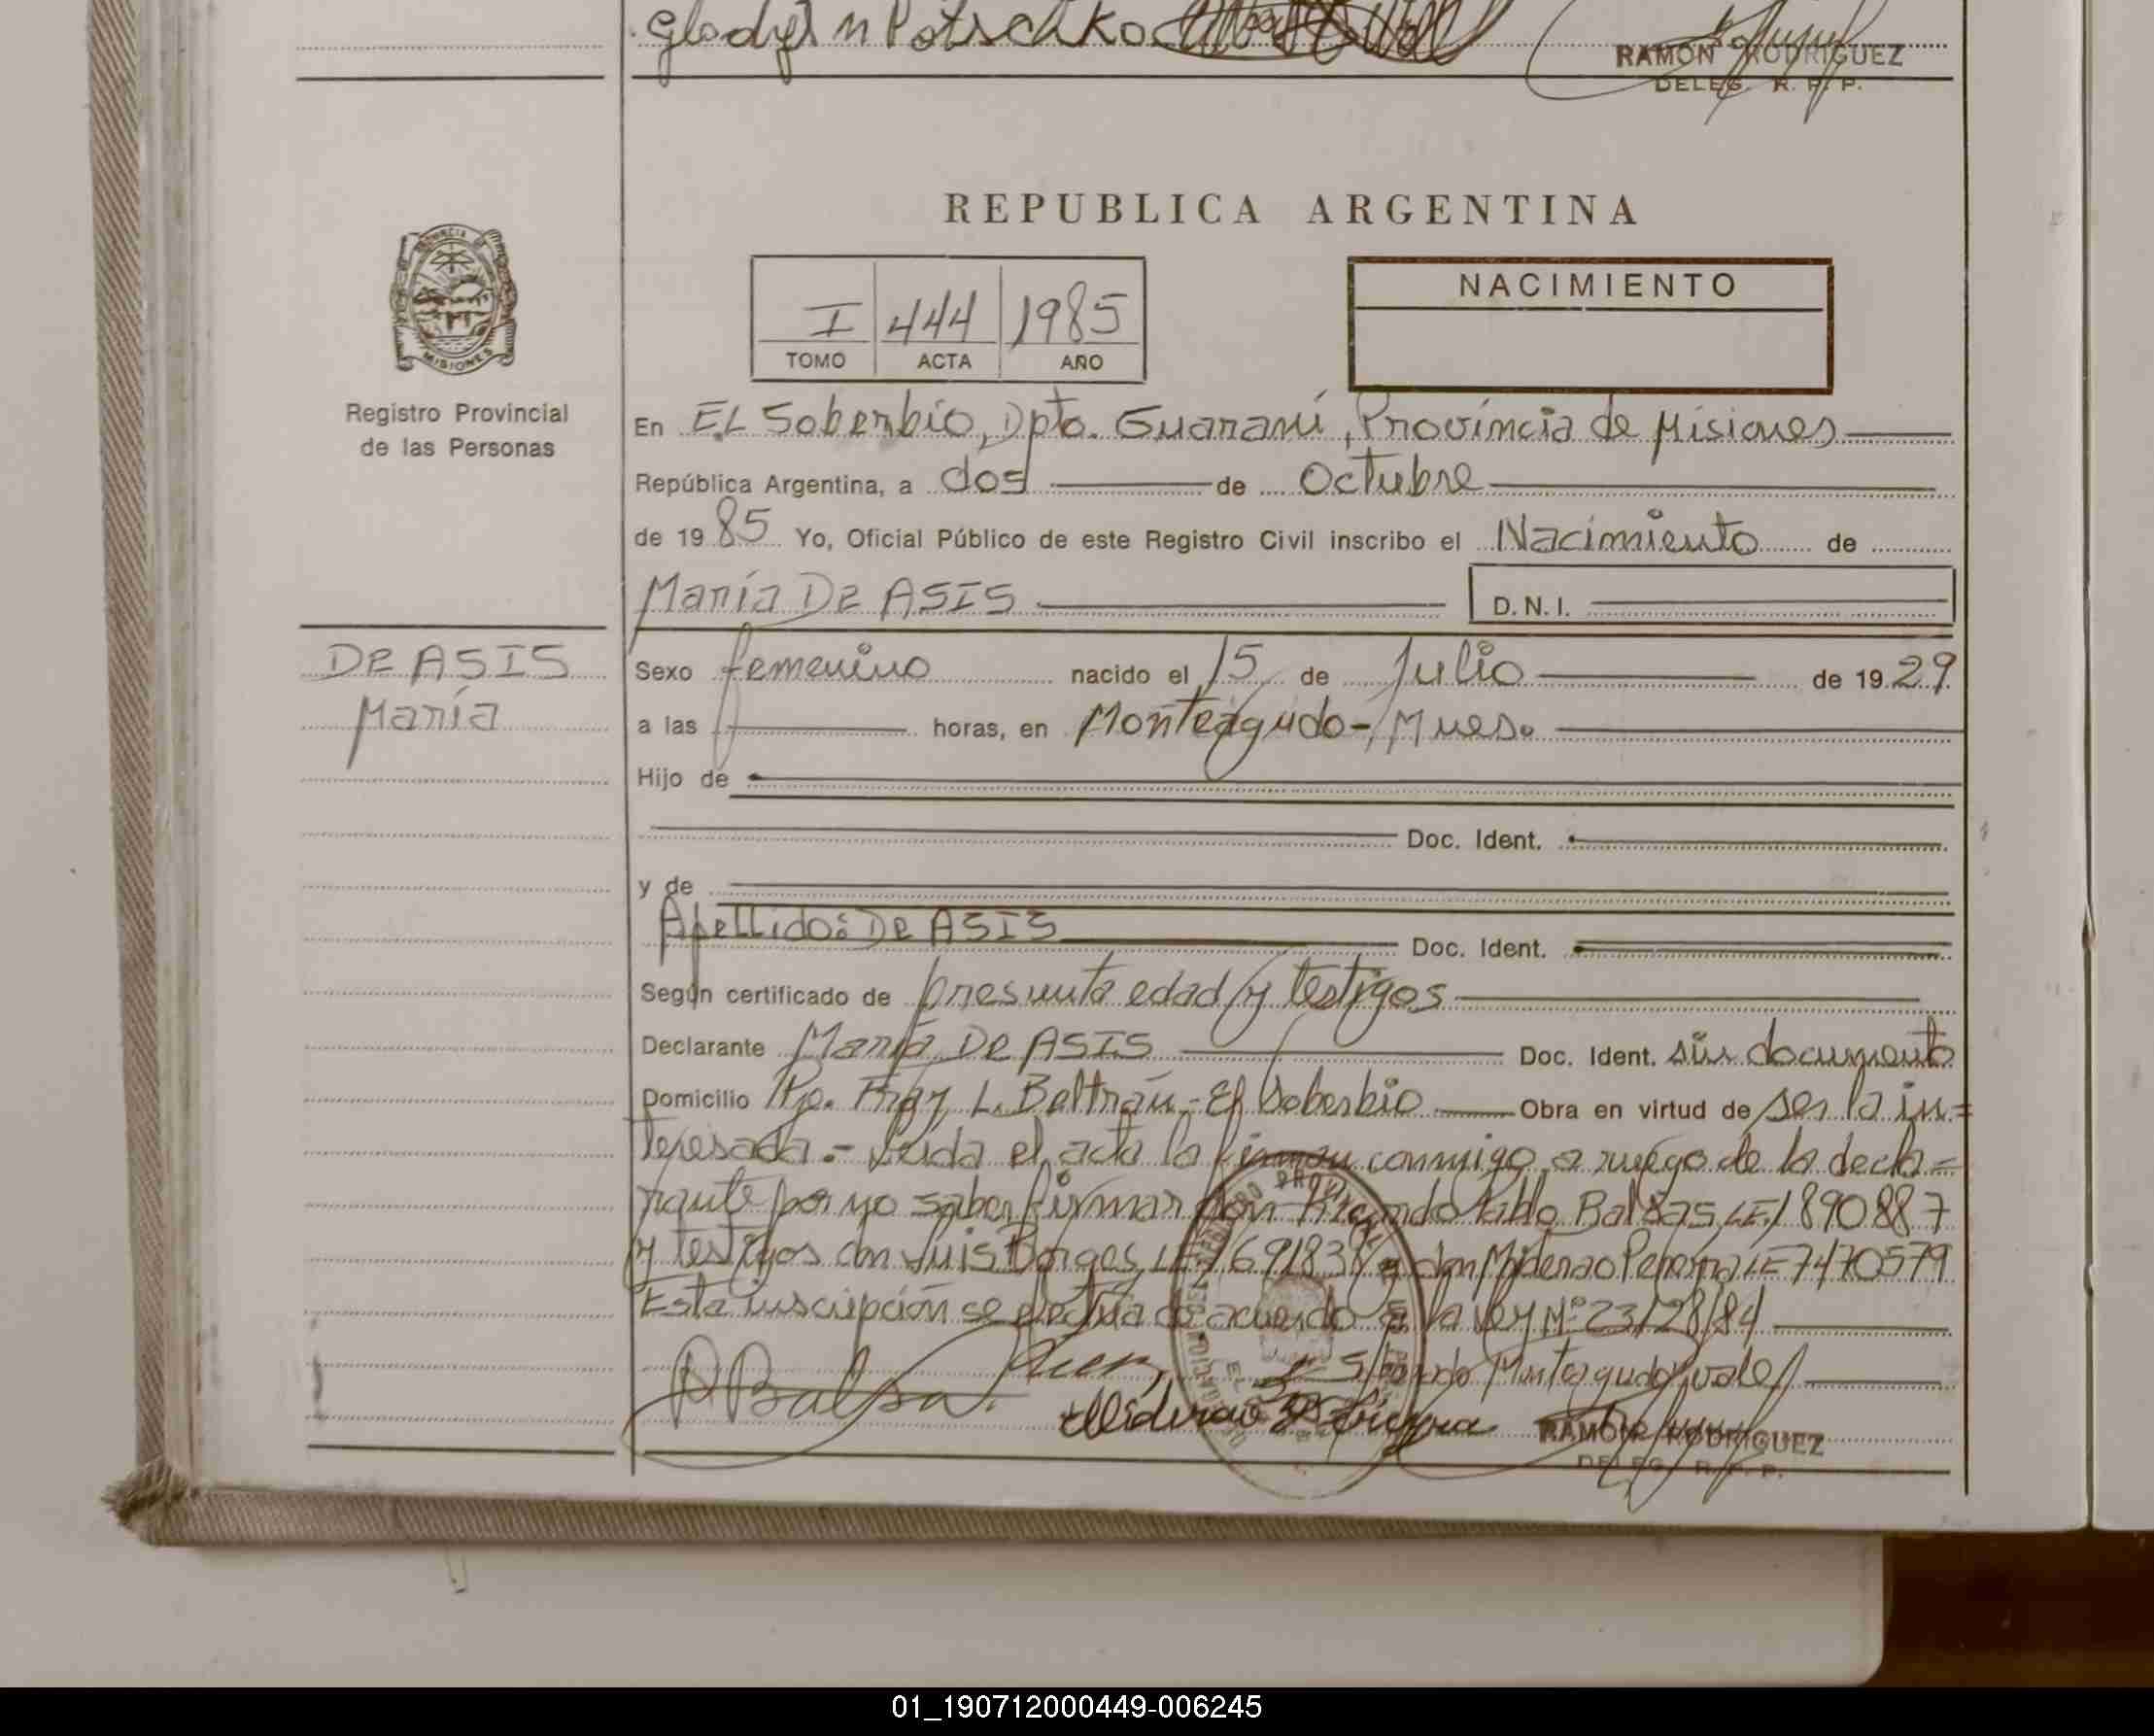 Gladys n Potschko
RAMON RODRIGUEZ
DELEG. R. P. P.
REPUBLICA ARGENTINA
PROVINCIA DE
MISIONES
Registro Provincial
de las Personas
I 444 1985
TOMO ACTA AÑO
NACIMIENTO
En EL Soberbio, Dpto. Guaraní, Provincia de Misiones
República Argentina, a dos de Octubre
de 1985 Yo, Oficial Público de este Registro Civil inscribo el Nacimiento de
María De ASIS D.N.I.
De ASIS
María
Sexo femenino nacido el 15 de Julio de 1929
a las horas, en Monteagudo-, Mnes.
Hijo de
Doc. Ident.
y de
Apellido: De ASIS Doc. Ident.
Según certificado de presunta edad y testigos
Declarante María De ASIS Doc. Ident. sin documento
Domicilio Pje. Fray L. Beltrán,- El Soberbio Obra en virtud de ser la in=
teresada.- Leída el acta la firman conmigo a ruego de la decla=
rante por no saber firmar don Ricardo Pablo Balsas LE 1890887
y testigos don Luis Borges, LE y don Miderao Pereyra LE 7470579
Esta inscripción se efectúa de acuerdo a la Ley Nº 23128/84
S/borrado Monteagudo, vale/
RBalsa.
Miderao Pereyra
RAMON RODRIGUEZ
DELEG. R. P. P.
01_190712000449-006245